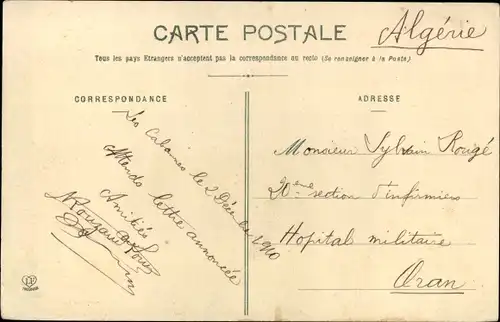 CARTE POSTALE
Algérie
Tous les pays Etrangers n'acceptent pas la correspondance au recto (Se renseigner à la Poste)
CORRESPONDANCE
Les Cabannes le 2 Décembre 1910
Attends lettre annoncée
Amitiés
ADRESSE
Monsieur Sylvain Rougé
20ème section d'infirmiers
Hopital militaire
Oran